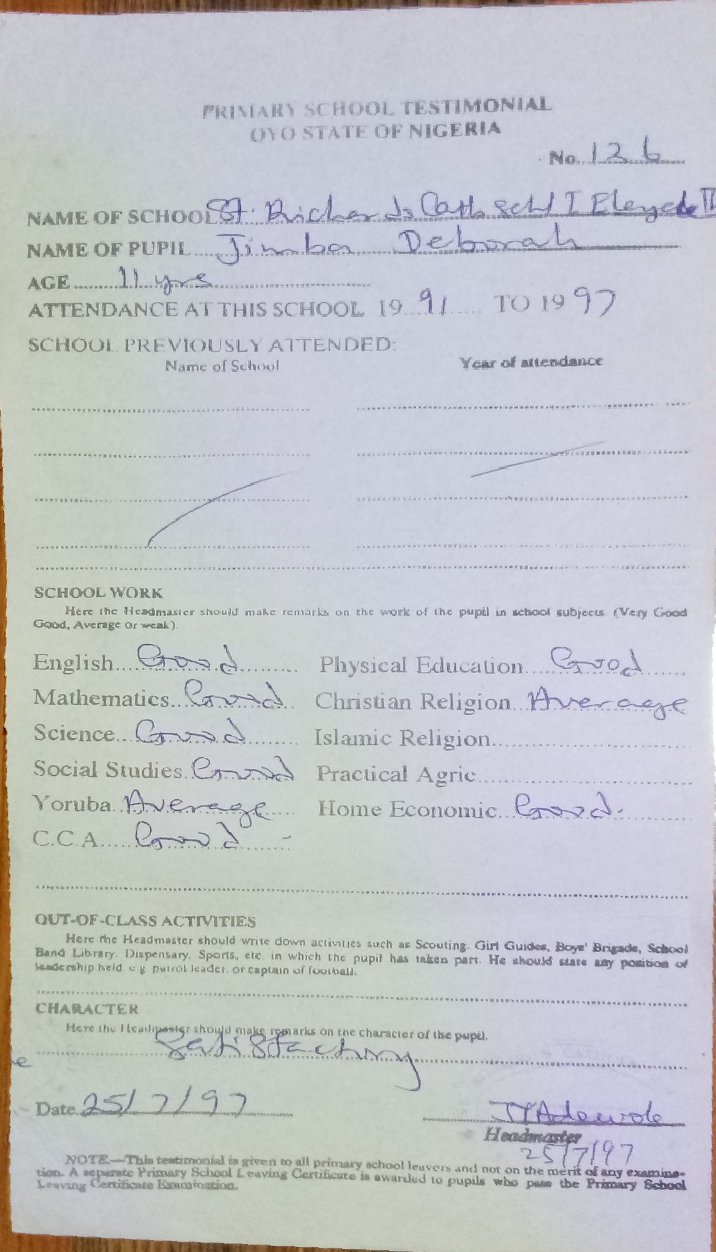 PRIMARY SCHOOL TESTIMONIAL
OYO STATE OF NIGERIA
No. 126
NAME OF SCHOOL St. Richards Cath Schl I Eleyele II
NAME OF PUPIL Jimba Deborah
AGE 11 yrs
ATTENDANCE AT THIS SCHOOL 19 91 TO 19 97
SCHOOL PREVIOUSLY ATTENDED:
Name of School Year of attendance
SCHOOL WORK
Here the Headmaster should make remarks on the work of the pupil in school subjects. (Very Good
Good, Average or weak)
English Good Physical Education Good
Mathematics Good Christian Religion Average
Science Good Islamic Religion
Social Studies Good Practical Agric
Yoruba Average Home Economic Good.
C.C.A. Good -
OUT-OF-CLASS ACTIVITIES
Here the Headmaster should write down activities such as Scouting. Girl Guides, Boys' Brigade, School
Band Library. Dispensary, Sports, etc. in which the pupil has taken part. He should state any position of
leadership held e.g patrol leader, or captain of football.
CHARACTER
Here the Headmaster should make remarks on the character of the pupil.
Satisfactory
Date 25/7/97
Adewole
Headmaster
25/7/97
NOTE.—This testimonial is given to all primary school leavers and not on the merit of any examina-
tion. A separate Primary School Leaving Certificate is awarded to pupils who pass the Primary School
Leaving Certificate Examination.